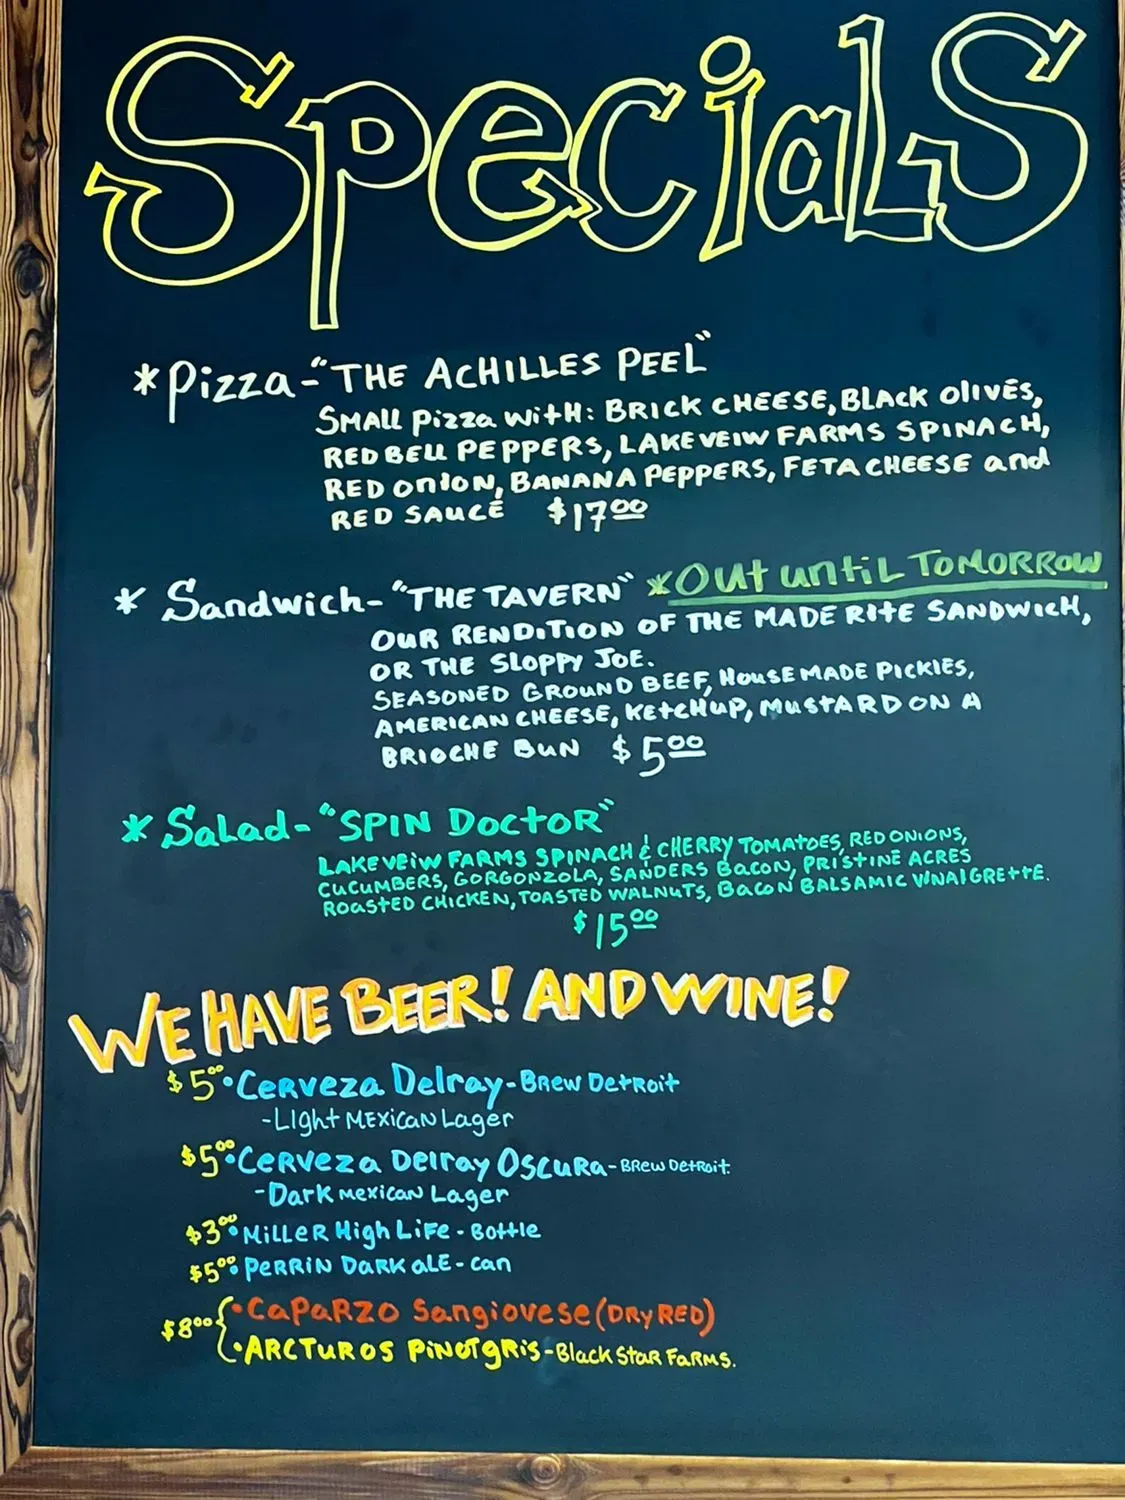 Specials
*Pizza-"THE ACHILLES PEEL"
SMALL PIZZA WITH: BRICK CHEESE, BLACK OLIVES,
RED BELL PEPPERS, LAKEVEIW FARMS SPINACH,
RED ONION, BANANA PEPPERS, FETA CHEESE and
RED SAUCE $17.00
* Sandwich-"THE TAVERN" *Out until TOMORROW
OUR RENDITION OF THE MADE RITE SANDWICH,
OR THE SLOPPY JOE.
SEASONED GROUND BEEF, HOUSEMADE PICKLES,
AMERICAN CHEESE, KETCHUP, MUSTARD ON A
BRIOCHE BUN $5.00
* Salad-"SPIN DOCTOR"
LAKEVEIW FARMS SPINACH & CHERRY TOMATOES, RED ONIONS,
CUCUMBERS, GORGONZOLA, SANDERS BACON, PRISTINE ACRES
ROASTED CHICKEN, TOASTED WALNUTS, BACON BALSAMIC VINAIGRETTE.
$15.00
WE HAVE BEER! AND WINE!
$5.00 • Cerveza Delray - Brew Detroit
- Light Mexican Lager
$5.00 • Cerveza Delray Oscura - Brew Detroit.
- Dark Mexican Lager
$3.00 • Miller High Life - Bottle
$5.00 • Perrin Dark Ale - can
$8.00 { • Caparzo Sangiovese (DRY RED)
• ARCTUROS PINOT gRiS - Black Star Farms.